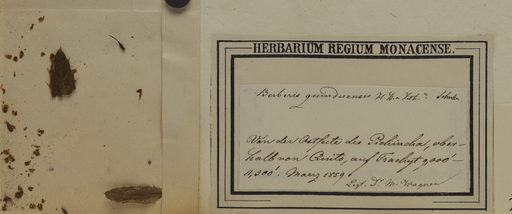 HERBARIUM REGIUM MONACENSE.
Berberis quinduensis H. B. Kth.
Von der Ostseite des Pichincha, ober-
halb von Quito, auf Trachyt, 9000'-
9,500'. Maerz 1859.
Legt. Dr. M. Wagner